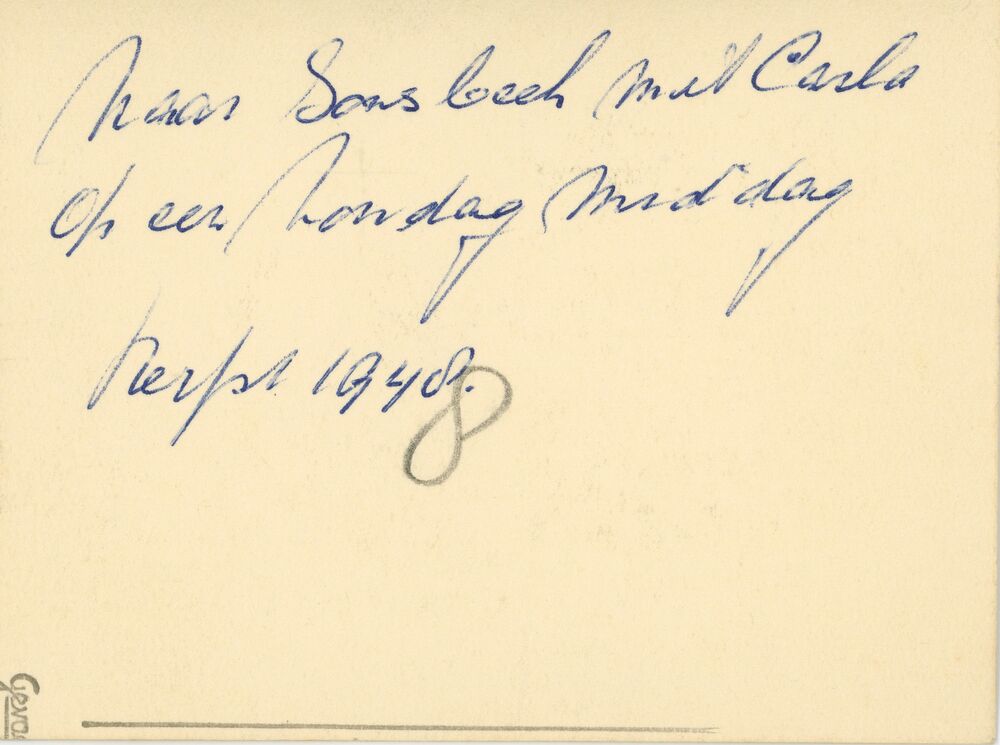 Naar Sonsbeek met Carla
Op een Zondag middag
Herfst 1948.
8
Geva